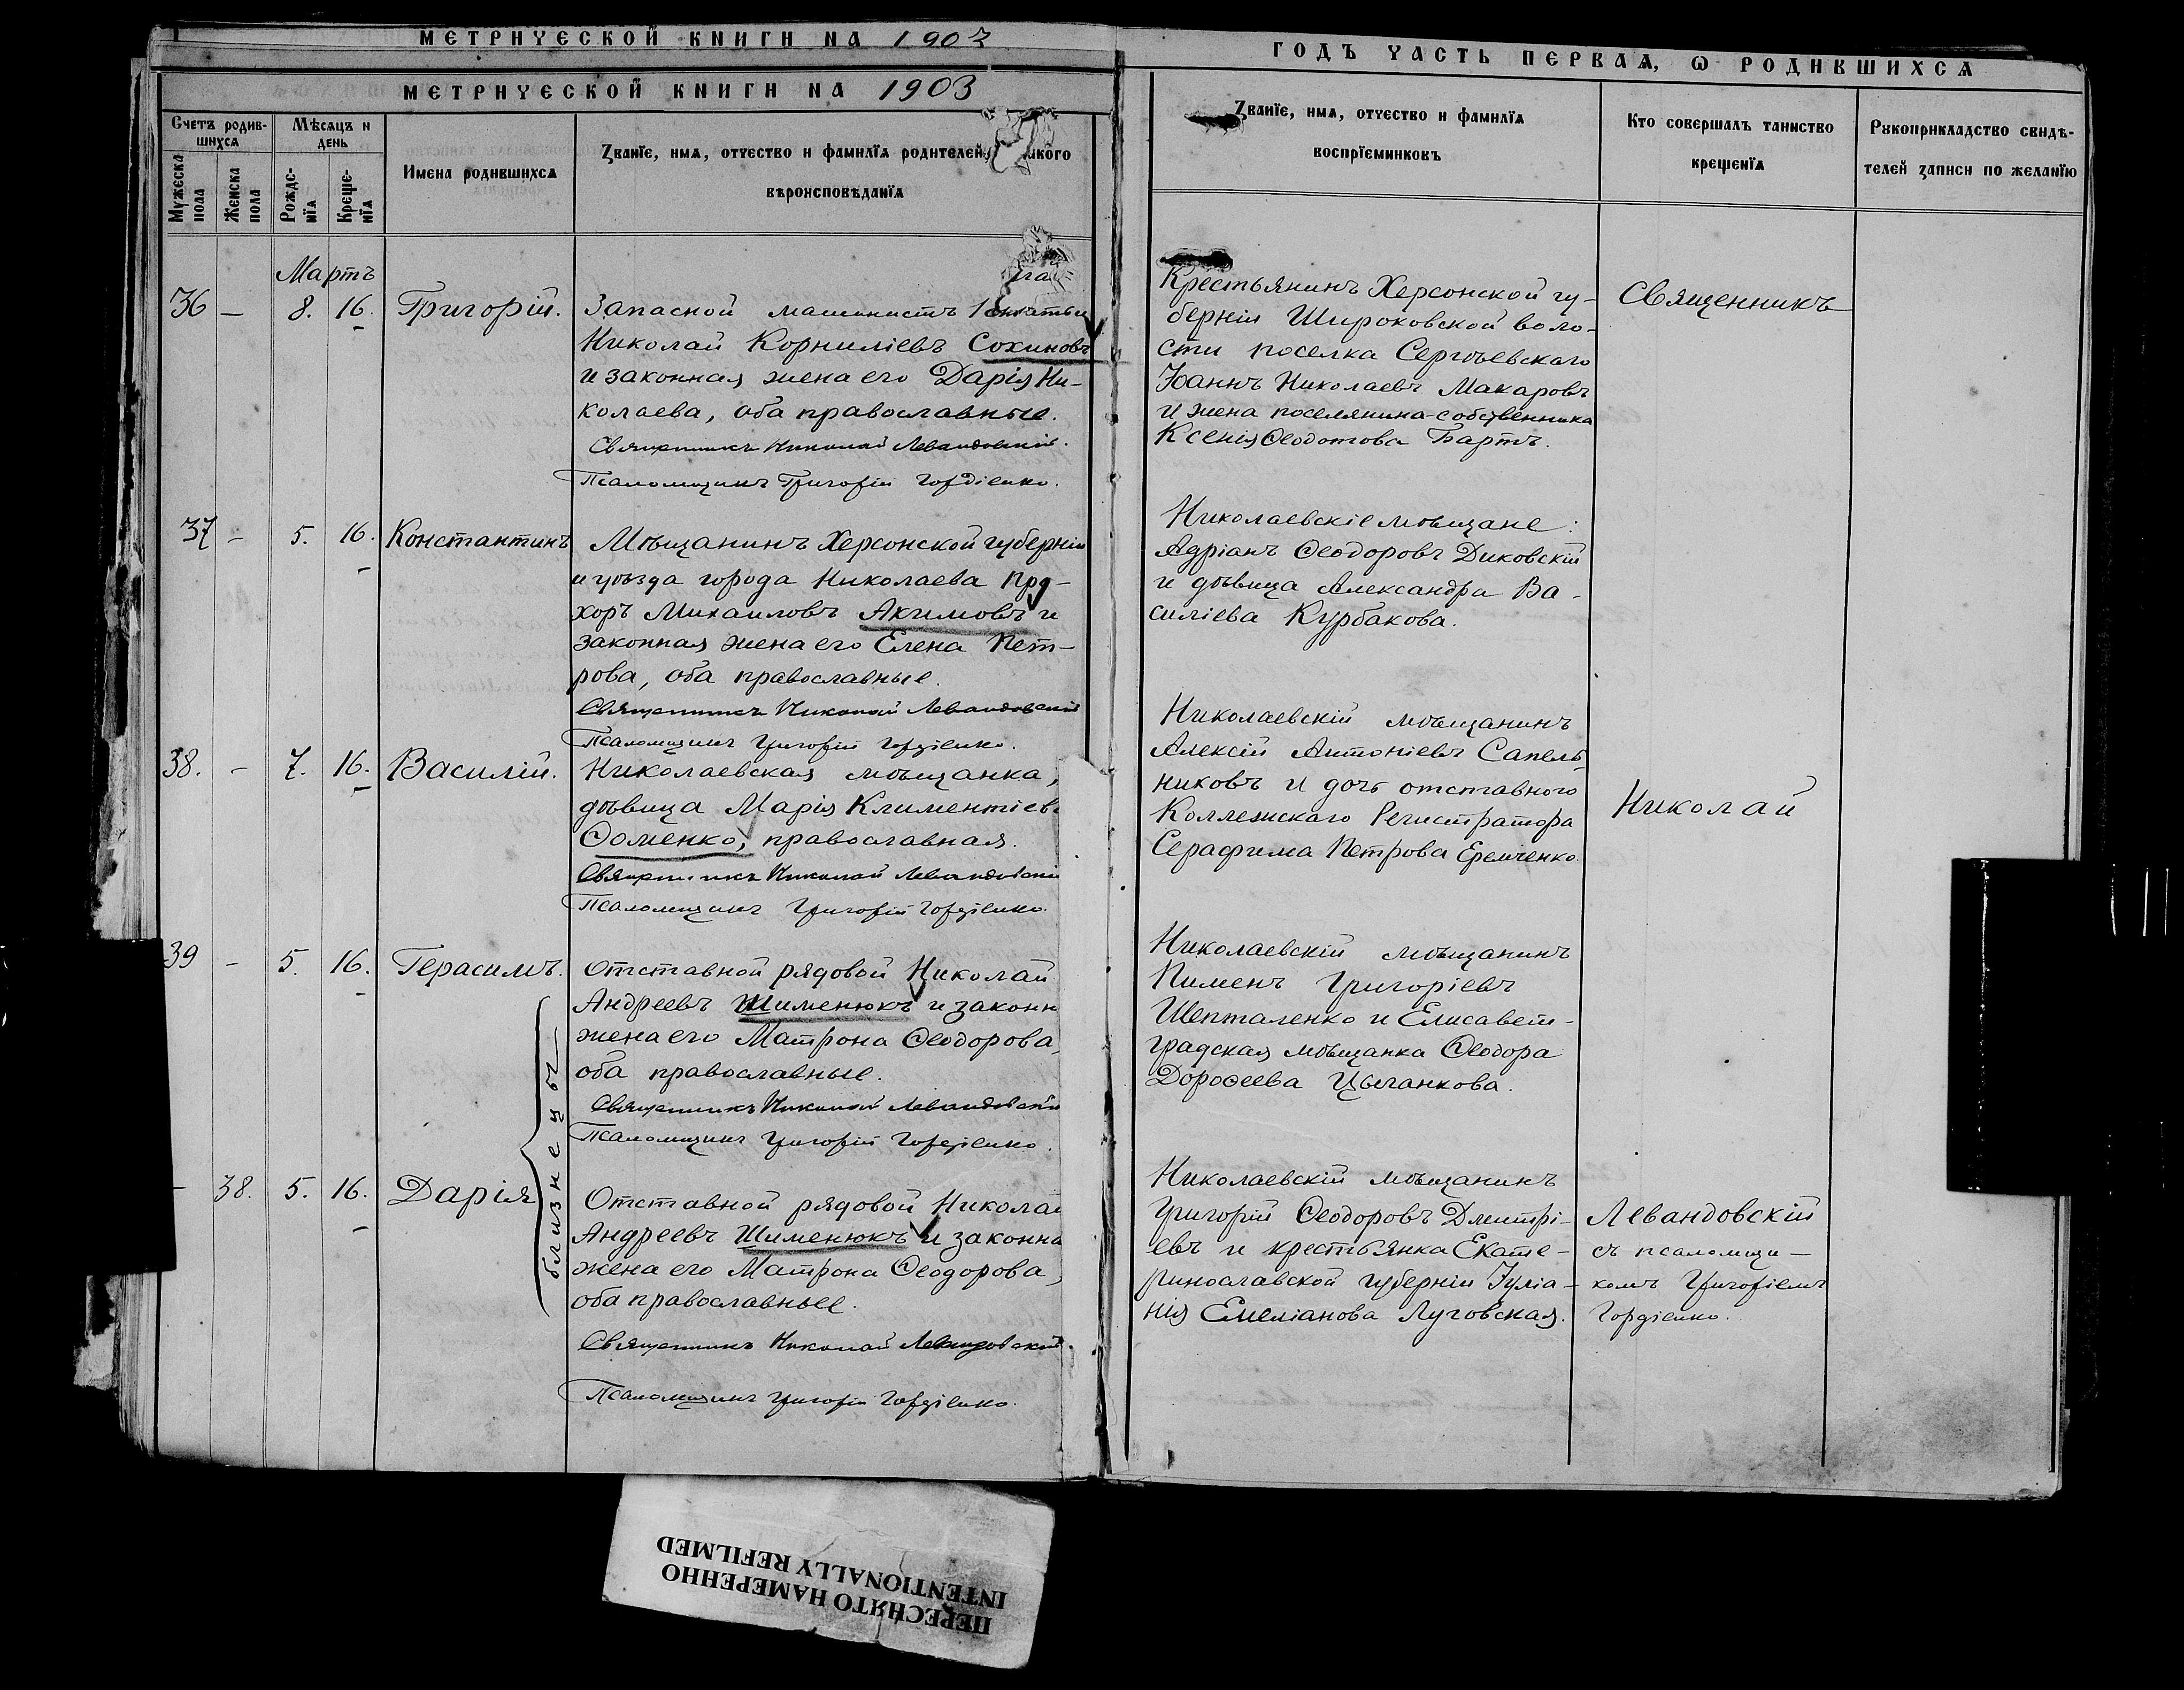 МЕТРИЧЕСКОЙ КНИГИ НА 1903
МЕТРИЧЕСКОЙ КНИГИ НА 1903
ГОДЪ ЧАСТЬ ПЕРВАЯ, Ѡ РОДИВШИХСЯ
Счетъ родив-
шихся
Мужеска
пола
Женска
пола
Мѣсяцъ и
день
Рожде-
нїя
Креще-
нїя
Имена родившихся
Званїе, имя, отчество и фамилїя родителей
вѣроисповѣданїя
Званїе, имя, отчество и фамилїя
воспрїемниковъ
Кто совершалъ таинство
крещенїя
Рукоприкладство свидѣ-
телей записи по желанїю
Мартъ
36 – 8. 16. Григорій.
Запасной машинистъ 1
Николай Корниліевъ Сохиновъ
и законная жена его Дарія Ни-
колаева, оба православные.
Священникъ Николай Левандовскій.
Псаломщикъ Григорій Гордіенко.
Крестьянинъ Херсонской гу-
берніи Широковской воло-
сти поселка Сергѣевскаго
Іоаннъ Николаевъ Макаровъ
и жена поселянина-собственника
Ксенія Ѳеодотова Бартъ.
Священникъ
37 – 5. 16. Константинъ
Мѣщанинъ Херсонской губерніи
и уѣзда города Николаева Про-
хоръ Михаиловъ Акимовъ и
законная жена его Елена Пет-
рова, оба православные.
Священникъ Николай Левандовскій
Псаломщикъ Григорій Гордіенко.
Николаевскіе мѣщане:
Адріанъ Ѳеодоровъ Диковскій
и дѣвица Александра Ва-
силіева Курбакова.
38. – 7. 16. Василій.
Николаевская мѣщанка,
дѣвица Марія Климентіев
Ѳоменко, православная.
Священникъ Николай Левандовскій
Псаломщикъ Григорій Гордіенко.
Николаевскій мѣщанинъ
Алексій Антоніевъ Сапель-
никовъ и дочь отставного
Коллежскаго Регистратора
Серафима Петрова Еремченко.
Николай
39 – 5. 16. Герасимъ.
Отставной рядовой Николай
Андреевъ Шименюкъ и законн
жена его Матрона Ѳеодорова,
оба православные.
Священникъ Николай Левандовскій
Псаломщикъ Григорій Гордіенко.
Николаевскій мѣщанинъ
Пименъ Григоріевъ
Шепталенко и Елисавет-
градская мѣщанка Ѳеодора
Дороѳеева Цыганкова.
близнецы
– 38. 5. 16. Дарія
Отставной рядовой Николай
Андреевъ Шименюкъ и законна
жена его Матрона Ѳеодорова,
оба православные.
Священникъ Николай Левандовскій.
Псаломщикъ Григорій Гордіенко.
Николаевскій мѣщанинъ
Григорій Ѳеодоровъ Дмитрі-
евъ и крестьянка Екате-
ринославской губерніи Іуліа-
нія Емеліанова Луговская.
Левандовскій
съ псаломщи-
комъ Григоріемъ
Гордіенко.
ПЕРЕСНЯТО НАМЕРЕННО
INTENTIONALLY REFILMED